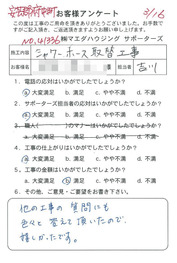 安芸郡府中町
3/16
お客様アンケート
この度は工事のご用命を頂きありがとうございました。お手数ですが
ご記入頂き、ご返送頂きますようお願い申し上げます。
NO.41336 ㈱マエダハウジング サポーターズ
工事内容 シャワーホース取替工事
担当者 吉川
1. 電話の応対はいかがでしたでしょうか?
a.大変満足 b.満足 c.やや不満 d.不満
2. サポーターズ担当者の応対はいかがでしたでしょうか?
a.大変満足 b.満足 c.やや不満 d.不満
3. 職人( )のマナーはいかがでしたでしょうか?
a.大変満足 b.満足 c.やや不満 d.不満
4. 工事の仕上がりはいかがでしたでしょうか?
a.大変満足 b.満足 c.やや不満 d.不満
5. 工事金額はいかがでしたでしょうか?
a.大変満足 b.満足 c.やや不満 d.不満
6. その他、ご意見・ご要望をお書き下さい。
他の工事の質問にも
色々と答えて頂いたので、
嬉しかったです。